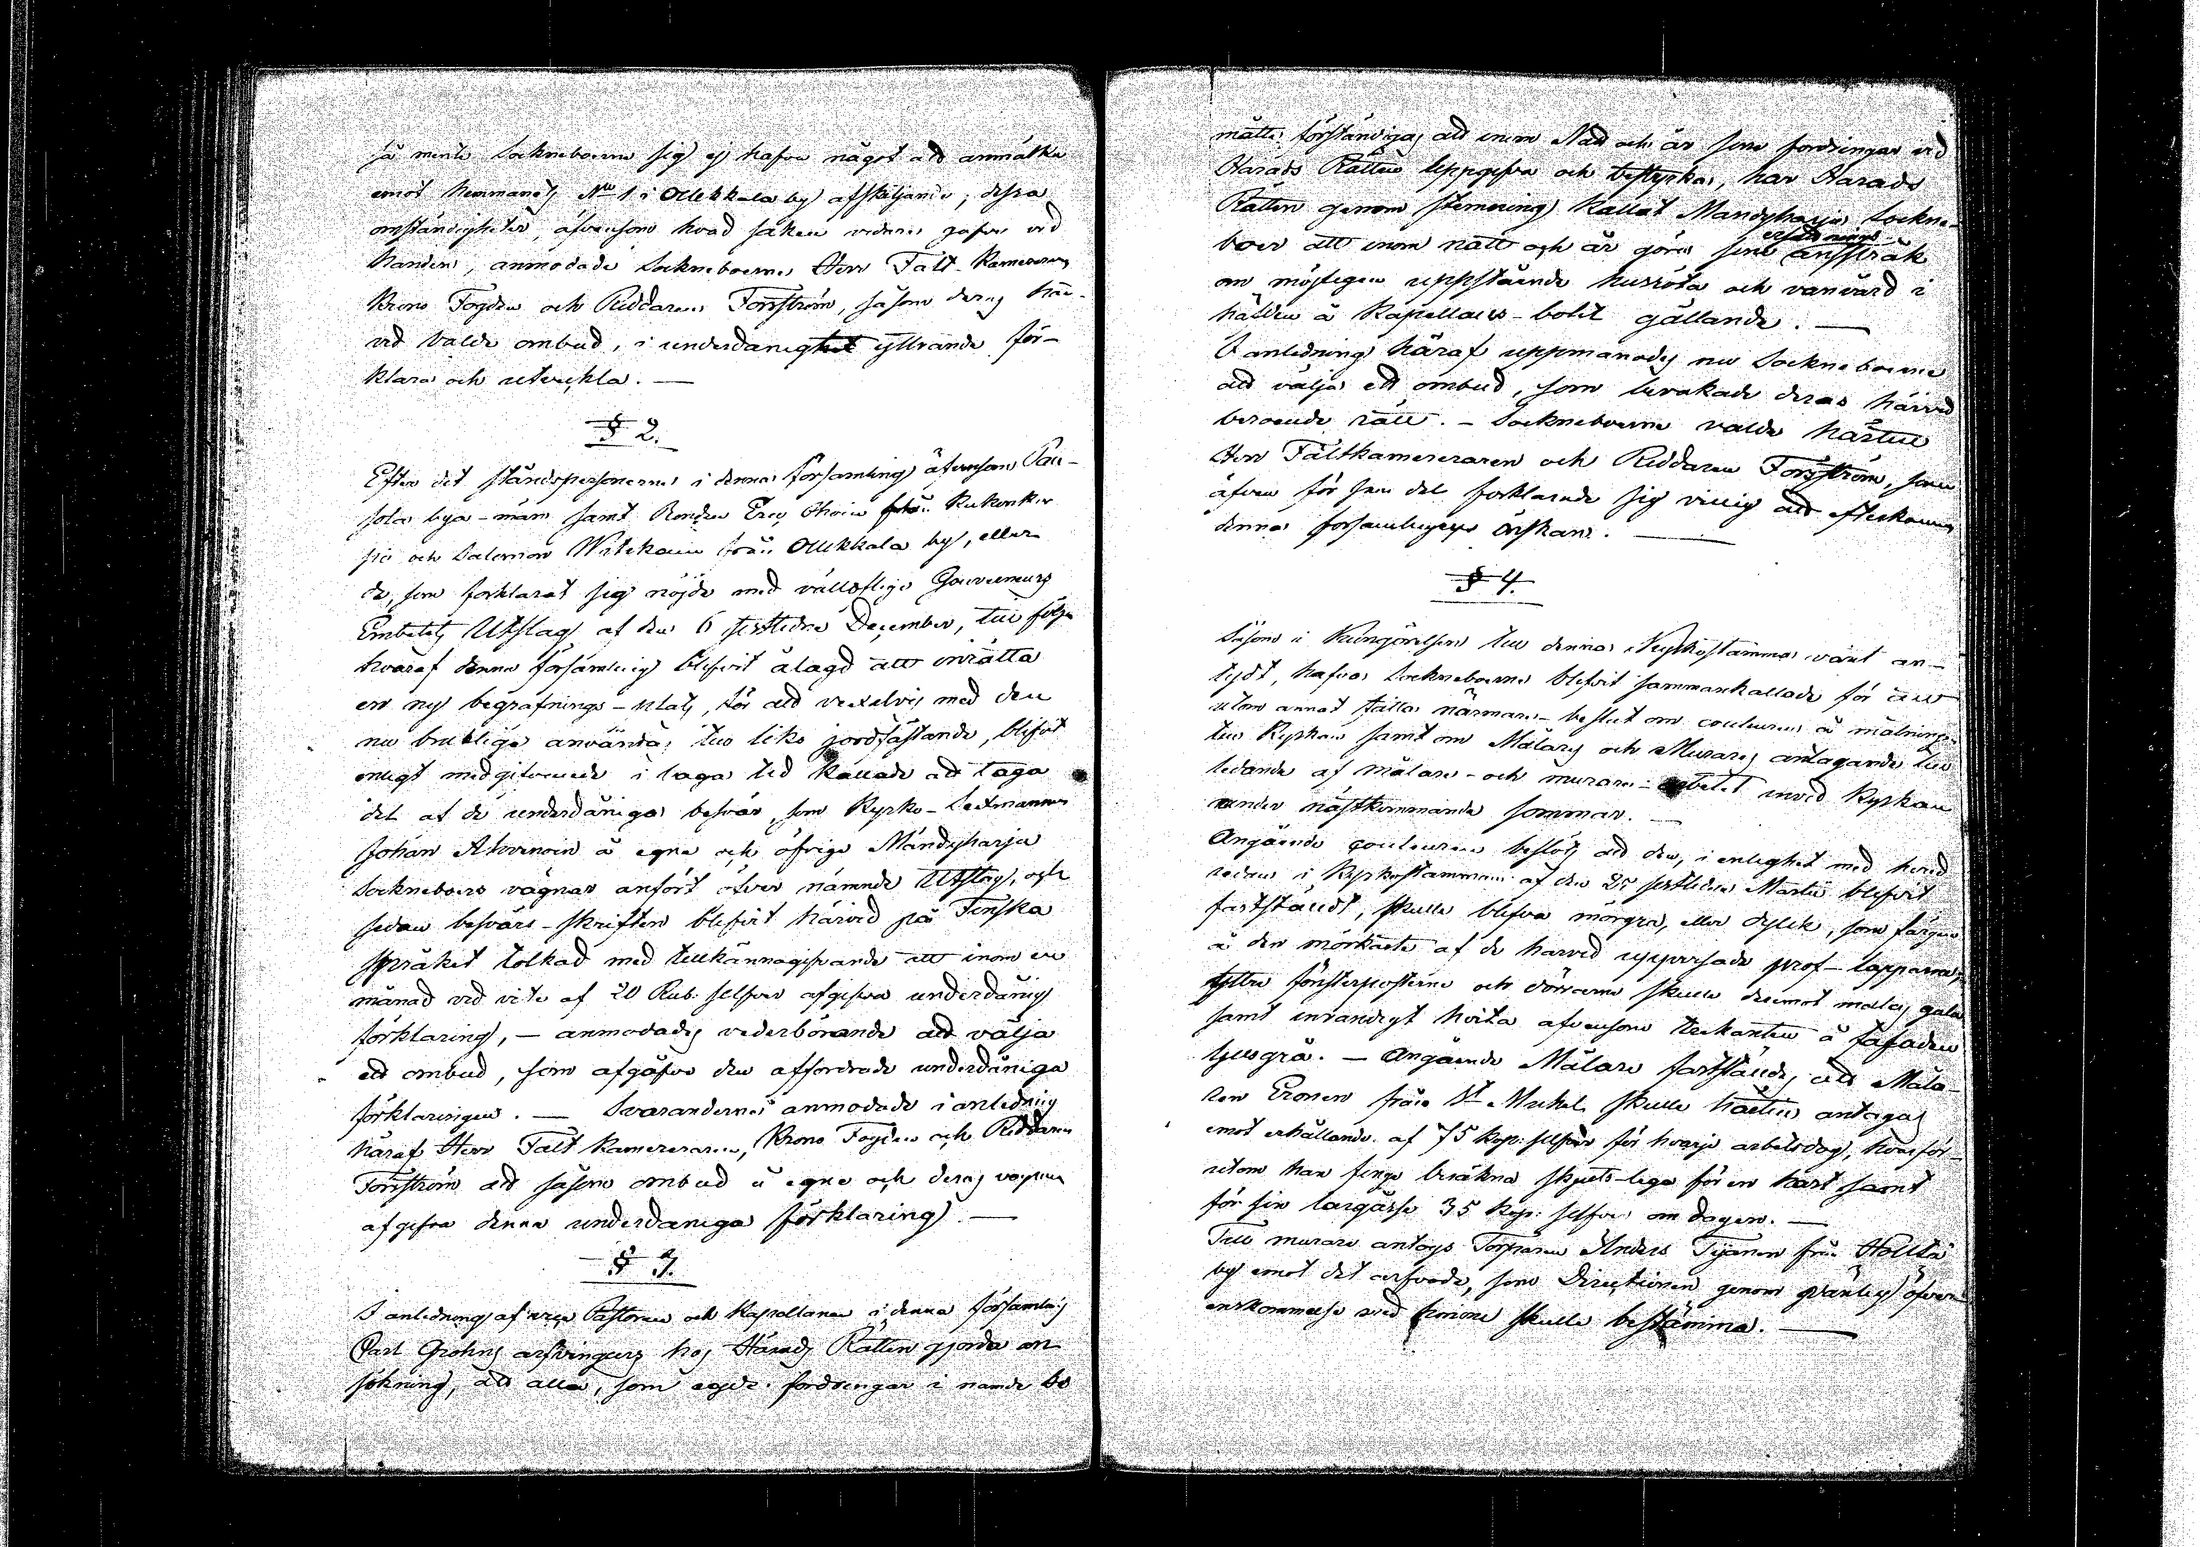 så mente Sockneboerne sig ej hafva något att anmärka
emot hemmanets No 1 i Ollikkala by afskiljande; dessa
omständigheter, äfvensom hvad saken vidare gafve vid
handen, anmodade Sockneboerne Herr Fält-Kamereraren
Krono Fogden och Riddaren Forsström, såsom deras här-
vid valde ombud, i underdånighet yttrande för-
klara och utveckla. —
§ 2.
Efter det ståndspersonerne i denna församling äfvensom Pau-
sola bya-män samt Bonden Eric från Kukonker
sie och Salomon Witikain från Ollikkala by, eller
de, som förklarat sig nöjde med vällofliga Gouverneurs
Embetets Utslag af den 6 sistledne December, till följe
hvaraf denna församling blifvit ålagd att inrätta
en ny begrafnings-plats, för att vexelvis med den
nu brukliga använda, till liks jordfästande, blifvit
enligt medgifvande i laga tid kallade att taga
del af de underdåniga besvär, som Kyrko-Sexmannen
Johan Ahvenain å egne och öfrige Mändyharju
Sockneboers vägnar anfört öfver nämnde Utslag, och
sedan besvärs-skriften blifvit härvid på Finska
språket tolkad med tillkännagifvande att inom en
månad vid vite af 20 Rub: silfver afgifva underdånig
förklaring, — anmodades vederbörande att välja
ett ombud, som afgåfve den affordrade underdåniga
förklaringen. — Svaranderne anmodade i anledning
häraf Herr Fält Kamereraren, Krono Fogden och Riddaren
Forsström att såsom ombud å egne och deras vägnar
afgifva denna underdåniga förklaring. —
§ 3.
I anledning af Pastoren och Kapellanen i denna församling
Carl Grohns arfvingars hos Härads Rätten gjorda an-
sökning, att alla, som ägde fordringar i nämnde bo
måtte förständigas att inom Natt och år sine fordringar vid
Härads Rätten uppgifva och bestyrka, har Härads
Rätten genom stemning kallat Mändyharju Sockne-
boer att inom natt och år göra sine ersättnings anspråk
om möjligen uppstående husröta och vanvård i
hänseende å Kapellans-bolet gällande. —
I anledning häraf uppmanades nu Sockneboerne
att välja ett ombud, som bevakade deras härvid
beroende rätt. — Sockneboerne valde härtill
Herr Fältkamereraren och Riddaren Forsström, som
äfven för sin del förklarade sig villig att efterkomma
denna församlingens önskan. —
§ 4.
Såsom i Kungörelsen till denna Kyrkostämma varit an-
tydt, hafva Sockneboerne blifvit sammankallade för att
utom annat fälla närmare beslut om couleuren å målningen
till Kyrkan samt om Målares och Murares antagande till
ledande af målare- och murare-arbetet invid Kyrkan
under nästkommande sommar. —
Angående couleuren beslöts att den, i enlighet med hvad
redan i Kyrkostämman af den 25 sistledne Martii blifvit
fastställdt, skulle blifva mörgrå, eller dylik, som färgen
å den mörkaste af de härvid uppvisade prof-lapparna,
yttre fönsterposterne och dörrarne skulle deremot målas gula
samt invändigt hvita äfvensom listkanten å façaden
ljusgrå. — Angående Målare fastställdes, att Måla-
ren Eronen från St. Michel skulle härtill antagas
emot erhållande af 75 kop: silfver för hvarje arbetsdag, hvarför-
utom han finge beräkna skjuts-lega för en häst samt
för sin lärgåsse 35 kop: silfver om dagen. —
Till murare antogs Torparen Anders Tijanen från Hölttä
by emot det arfvode, som Directionen genom vänlig öfver-
enskommelse med honom skulle bestämma. —